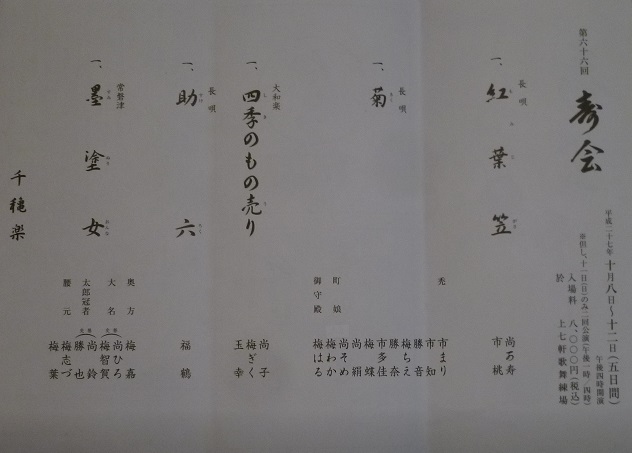 第六十六回
寿会
平成二十七年 十月八日〜十二日(五日間)
午後四時開演
※但し、十一日(日)のみ二回公演(午後一時/四時)
入場料 八、〇〇〇円(税込)
於 上七軒歌舞練場
一、長唄 紅葉笠
もみじがさ
尚あ寿
市桃
一、長唄 菊
きく
禿
市まり
市知
勝音
梅ちえ
勝奈
市多佳
梅蝶
尚絹
町娘
尚そめ
梅わか
御守殿
梅はる
一、大和楽 四季のもの売り
しきのものうり
尚子
梅ぎく
玉幸
一、長唄 助六
すけろく
福鶴
一、常磐津 墨塗女
すみぬりおんな
奥方
梅嘉
大名
尚ひろ
梅智賀
太郎冠者
尚鈴
勝也
腰元
梅志づ
梅葉
千穐楽